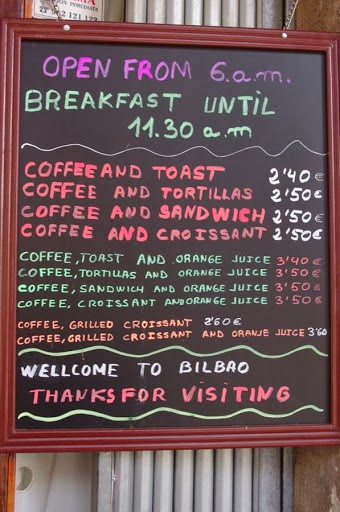 OPEN FROM 6.a.m.
BREAKFAST UNTIL
11.30 a.m
COFFEE AND TOAST 2'40€
COFFEE AND TORTILLAS 2'50€
COFFEE AND SANDWICH 2'50€
COFFEE AND CROISSANT 2'50€
COFFEE, TOAST AND ORANGE JUICE 3'40€
COFFEE, TORTILLAS AND ORANGE JUICE 3'50€
COFFEE, SANDWICH AND ORANGE JUICE 3'50€
COFFEE, CROISSANT AND ORANGE JUICE 3'50€
COFFEE, GRILLED CROISSANT 2'60€
COFFEE, GRILLED CROISSANT AND ORANJE JUICE 3'60
WELLCOME TO BILBAO
THANKS FOR VISITING